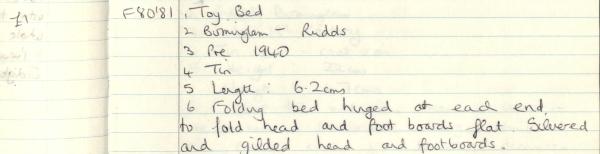 F80'81
1 Toy Bed
2 Birmingham - Rudds
3 Pre 1940
4 Tin
5 Length: 6.2cms
6 Folding bed hinged at each end
to fold head and foot boards flat. Silvered
and gilded head and footboards.